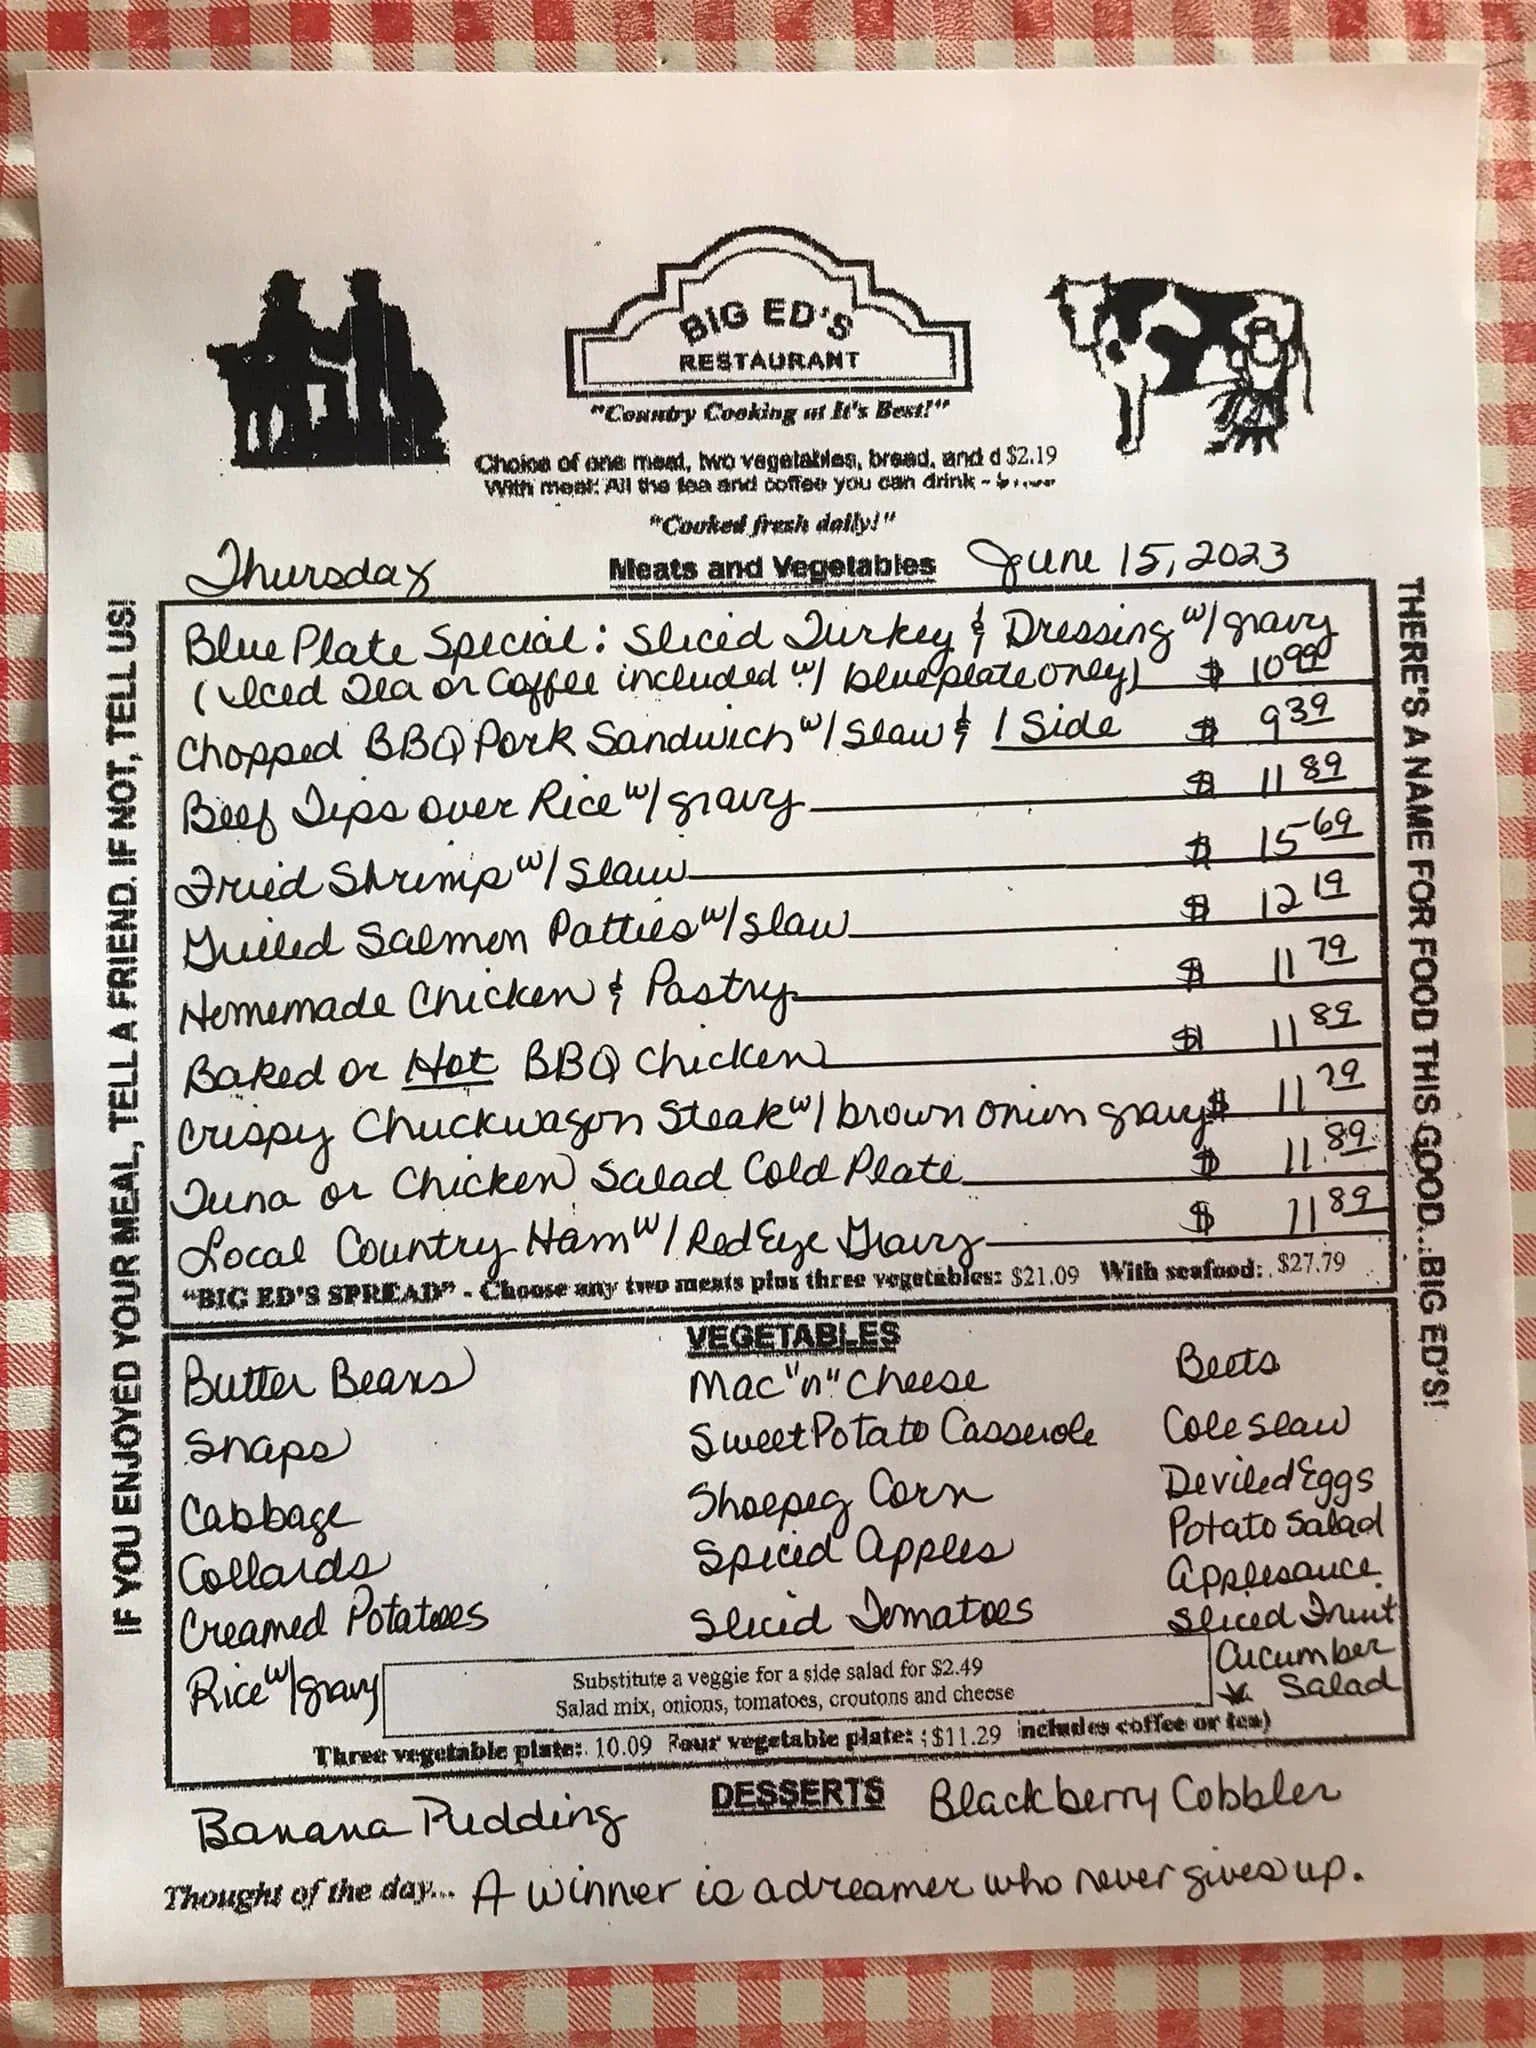 BIG ED'S
RESTAURANT
"Country Cooking at It's Best!"
Choice of one meat, two vegetables, bread, and d $2.19
With meal: All the tea and coffee you can drink -
"Cooked fresh daily!"
Thursday Meats and Vegetables June 15, 2023
IF YOU ENJOYED YOUR MEAL, TELL A FRIEND. IF NOT, TELL US!
Blue Plate Special: Sliced Turkey & Dressing w/ gravy
(Iced Tea or Coffee included w/ blue plate only) $ 10.99
Chopped BBQ Pork Sandwich w/ Slaw & 1 Side $ 9.39
Beef Tips over Rice w/ gravy $ 11.89
Fried Shrimp w/ Slaw $ 15.69
Grilled Salmon Patties w/ slaw $ 12.19
Homemade Chicken & Pastry $ 11.79
Baked or Hot BBQ Chicken $ 11.89
Crispy Chuckwagon Steak w/ brown onion gravy $ 11.79
Tuna or Chicken Salad Cold Plate $ 11.89
Local Country Ham w/ Red Eye Gravy $ 11.89
"BIG ED'S SPREAD" - Choose any two meats plus three vegetables: $21.09 With seafood: $27.79
THERE'S A NAME FOR FOOD THIS GOOD...BIG ED'S!
VEGETABLES
Butter Beans Mac "n" Cheese Beets
Snaps Sweet Potato Casserole Cole Slaw
Cabbage Shoepeg Corn Deviled Eggs
Collards Spiced Apples Potato Salad
Creamed Potatoes Sliced Tomatoes Applesauce
Sliced Fruit
Rice w/ gravy Cucumber Salad
Substitute a veggie for a side salad for $2.49
Salad mix, onions, tomatoes, croutons and cheese
Three vegetable plate: 10.09 Four vegetable plate: $11.29 includes coffee or tea)
DESSERTS
Banana Pudding Blackberry Cobbler
Thought of the day... A winner is a dreamer who never gives up.